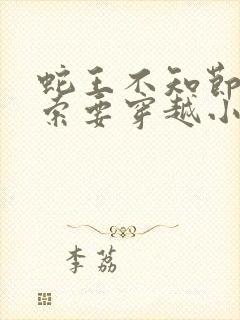 蛇王不知节
索要穿越小
李荔